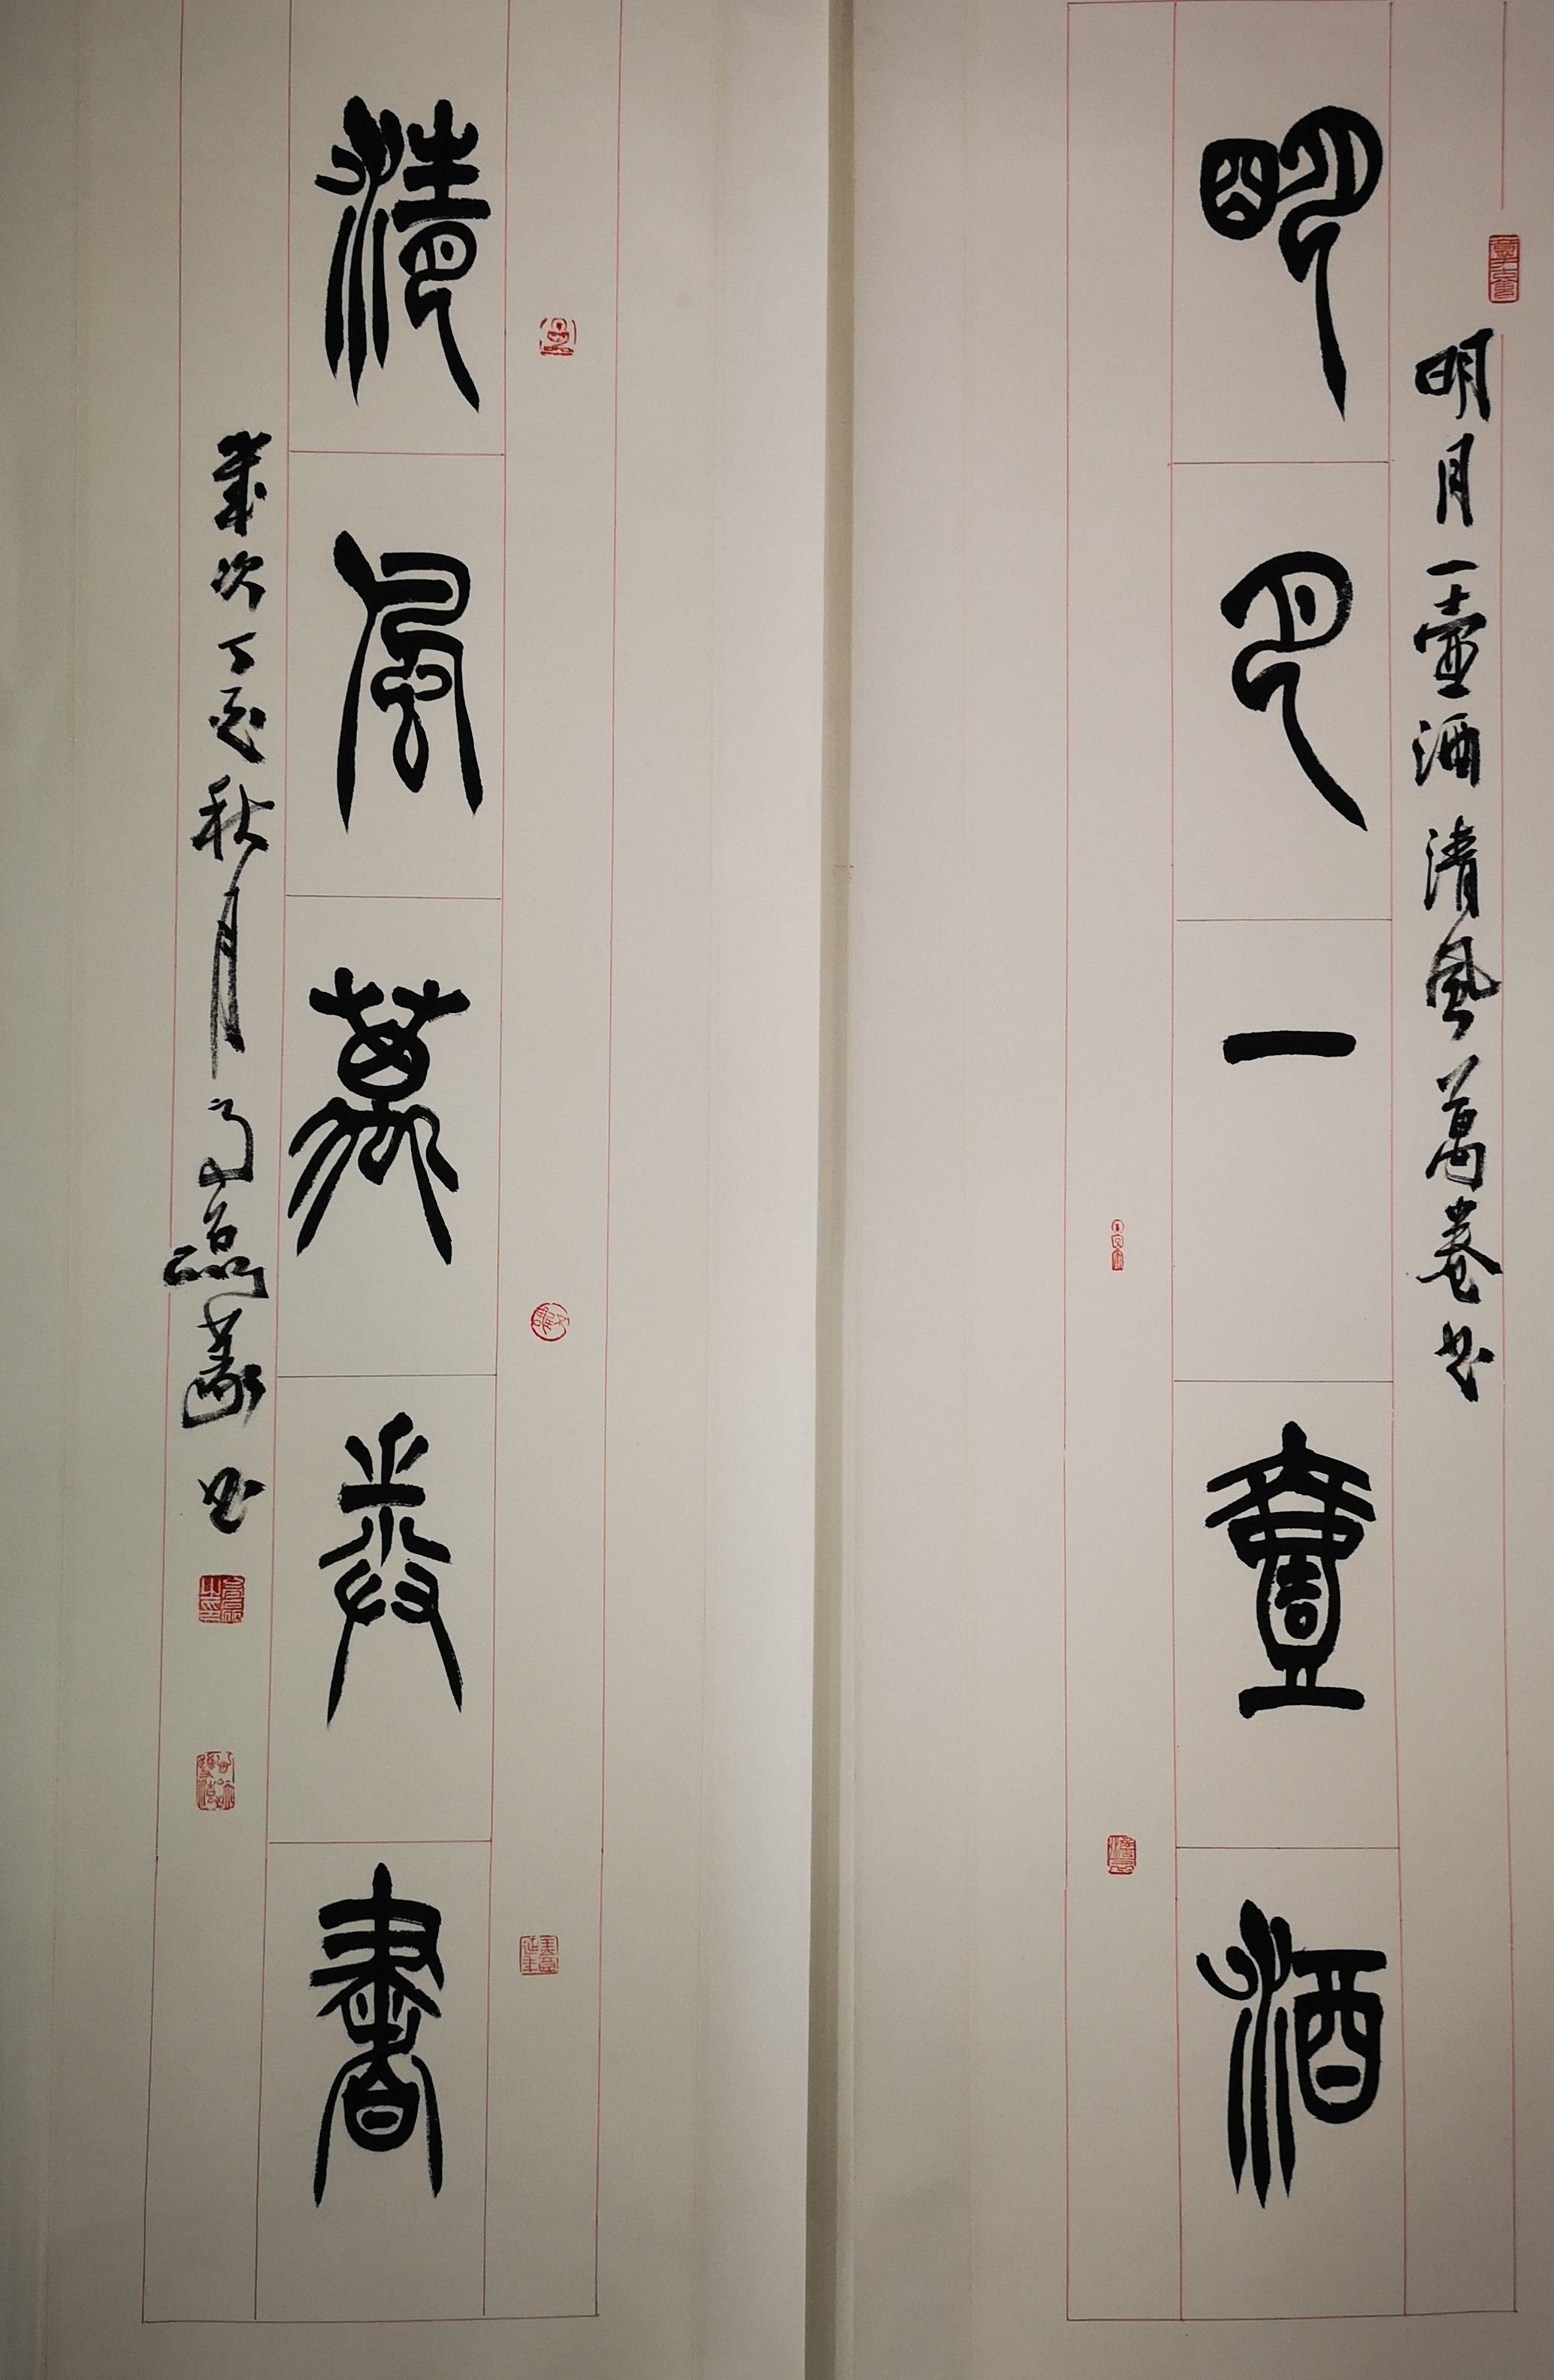 明月一壺酒清風萬卷书
明月一壺酒
清風萬卷書
歲次丁酉秋月
书